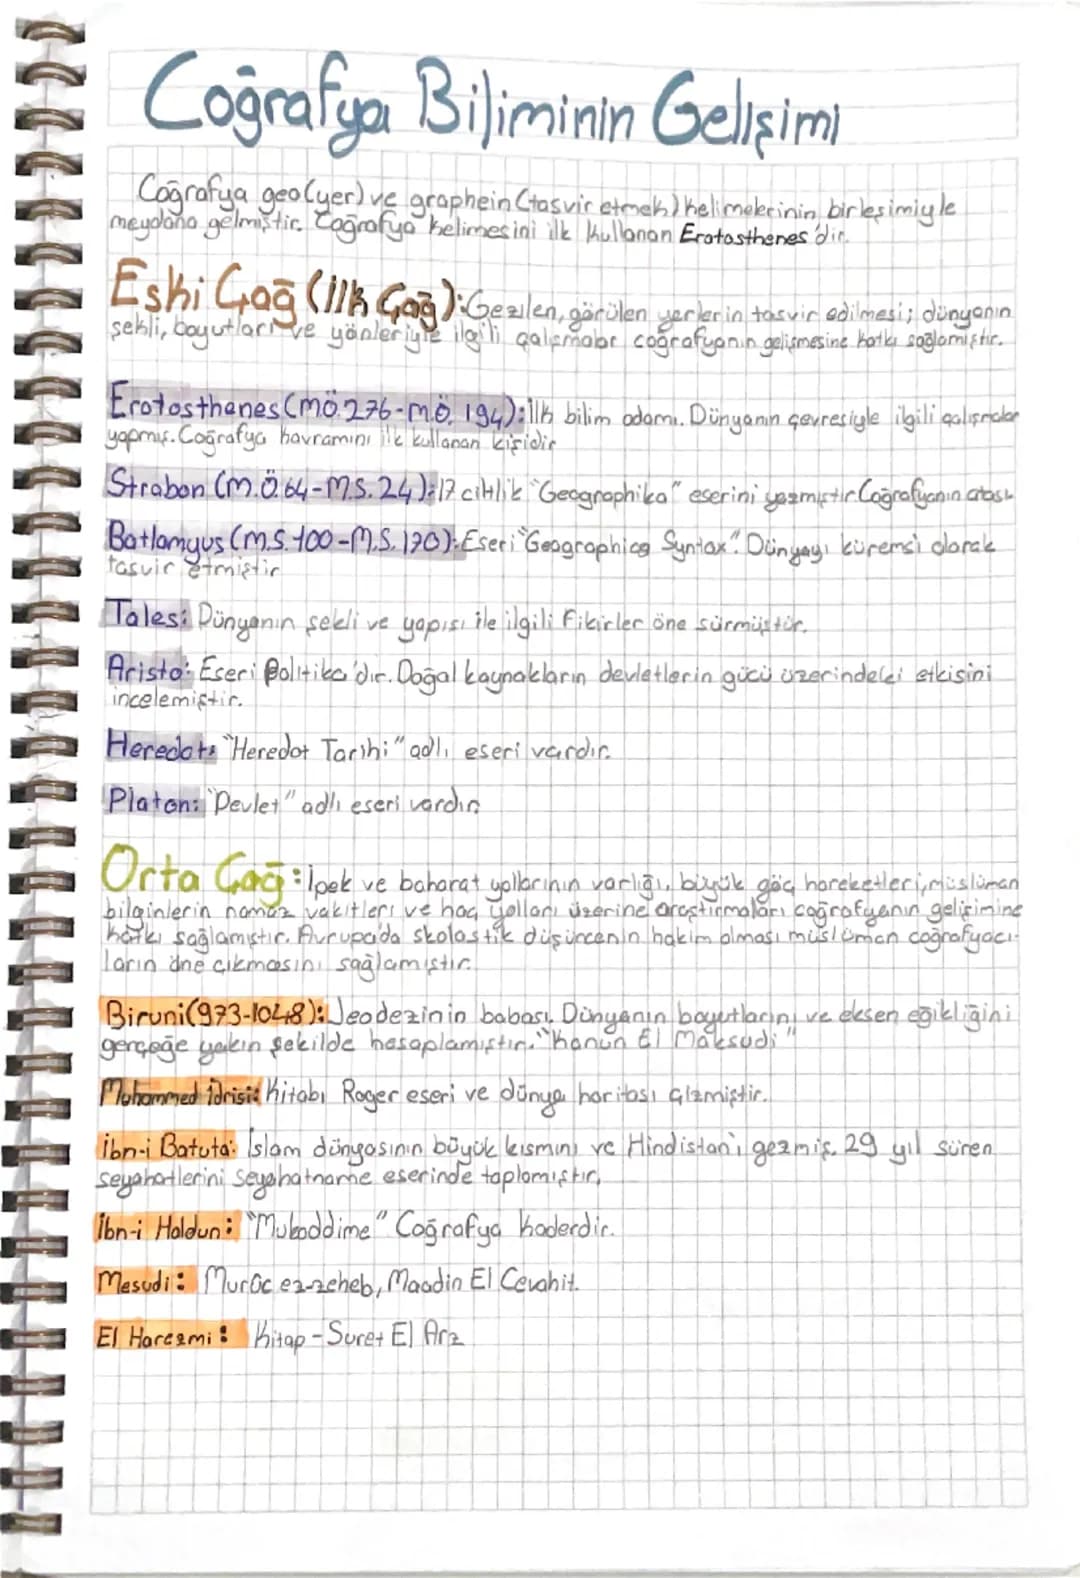 Coğrafya Biliminin Gelişimi
Coğrafya geo(yer) ve graphein (tasvir etmek) kelimelerinin birleşimiyle
meydana gelmiştir. Coğrafya kelimesini ilk kullanan Eratosthenes'dir.
Eski Çağ (İlk Çağ): Gezilen, görülen yerlerin tasvir edilmesi; dünyanın
şekli, boyutları ve yönleriyle ilgili çalışmalar coğrafyanın gelişmesine katkı sağlamıştır.
Eratosthenes (MÖ.276-M.Ö. 194): İlk bilim adamı. Dünyanın çevresiyle ilgili çalışmalar
yapmış. Coğrafya kavramını ilk kullanan kişidir
Strabon (M.Ö.64-M.S.24): 17 ciltlik "Geographika" eserini yazmıştır. Coğrafyanın atası
Batlamyus (M.S.100-M.S.170): Eseri "Geographica Syntax". Dünyayı küremsi olarak
tasvir etmiştir
Tales: Dünyanın şekli ve yapısı ile ilgili fikirler öne sürmüştür.
Aristo: Eseri Politika'dır. Doğal kaynakların devletlerin gücü üzerindeki etkisini
incelemiştir.
Heredot: "Heredot Tarihi" adlı eseri vardır.
Platon: "Devlet" adlı eseri vardır
Orta Çağ: İpek ve baharat yollarının varlığı, büyük göç hareketleri, müslüman
bilginlerin namaz vakitleri ve hac yolları üzerine araştırmaları coğrafyanın gelişimine
katkı sağlamıştır. Avrupa'da skolastik düşüncenin hakim olması müslüman coğrafyacı-
ların öne çıkmasını sağlamıştır.
Biruni(973-1048): Jeodezinin babası. Dünyanın boyutlarını ve eksen eğikliğini
gerçeğe yakın şekilde hesaplamıştır. "Kanun El Maksudi"
Muhammed idrisi: Kitabı Roger eseri ve dünya haritası çizmiştir.
İbn-i Batuta: İslam dünyasının büyük kısmını ve Hindistan'ı gezmiş. 29 yıl süren
seyahatlerini seyahatname eserinde toplamıştır.
İbn-i Haldun: "Mukaddime" Coğrafya kaderdir.
Mesudi: Murûc ez-zeheb, Maadin El Cevahit.
El Harezmi: Kitap - Suret El Arz